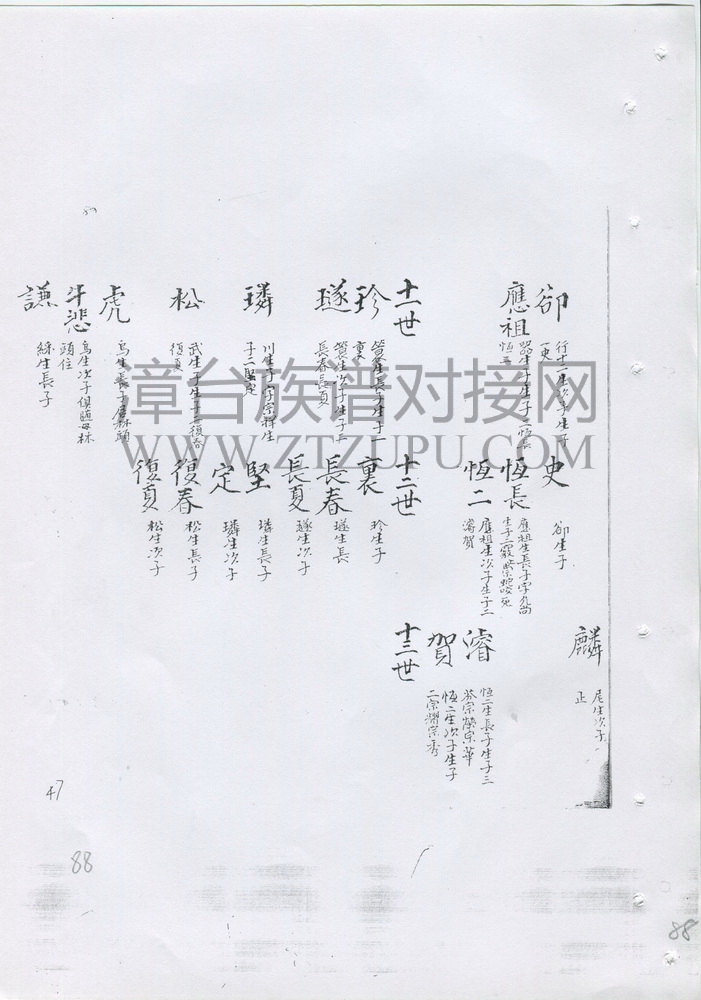 卻
行十一生次子生子
一史
應祖
器生子生子二恆長
恆二
十一世
珍
裏
璲
長春長夏
璘
川生子字宗科生
子二堅定
松
武生子生子二復春
復夏
虎
斗悲
烏生次子俱随母林
頭住
謙
綵生長子
史
卻生子
恆長
應祖生長子字九尚
恆二
應祖生次子生子二
濬賀
十二世
裏
珍生子
長春
璲生長
長夏
璲生次子
堅
璘生長子
定
璘生次子
復春
松生長子
復夏
松生次子
麟
尾生次子
正
濬
恆二生長子生子三
宗榮宗華
賀
恆二生次子生子
二宗耀宗秀
十三世
漳台族谱对接网
WWW.ZTZUPU.COM
47
88
88